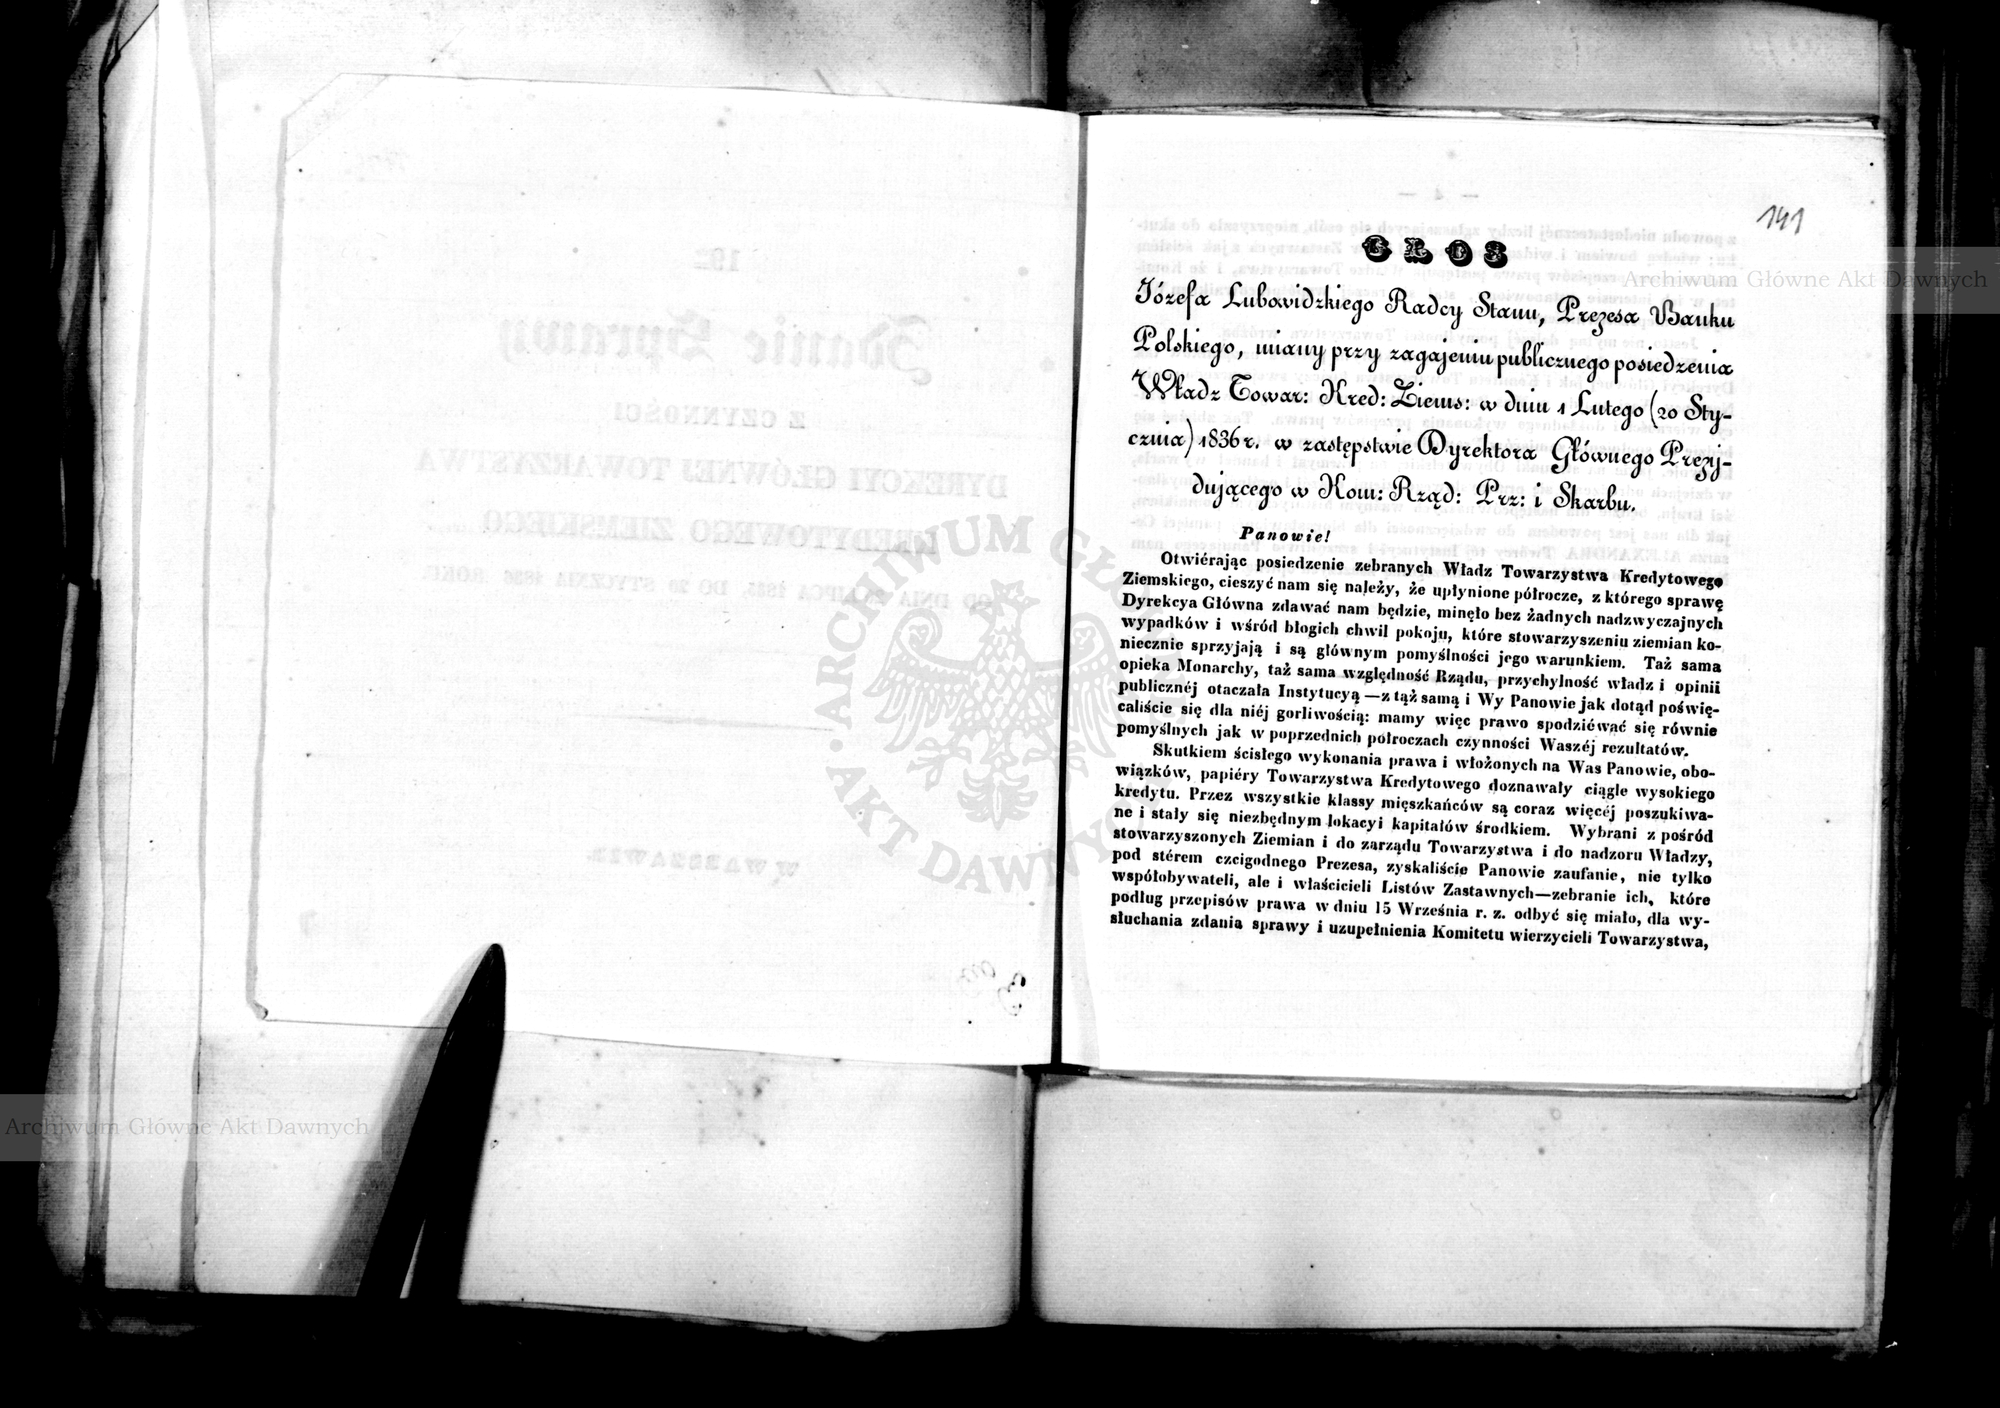 141
GŁOS
Józefa Lubowidzkiego Radcy Stanu, Prezesa Banku
Polskiego, miany przy zagajeniu publicznego posiedzenia
Władz Towar: Kred: Ziems: w dniu 1 Lutego (20 Sty-
cznia) 1836 r. w zastępstwie Dyrektora Głównego Prezy-
dującego w Kom: Rząd: Prz: i Skarbu.
Panowie!
Otwiérając posiedzenie zebranych Władz Towarzystwa Kredytowego
Ziemskiego, cieszyć nam się należy, że upłynione półrocze, z którego sprawę
Dyrekcya Główna zdawać nam będzie, minęło bez żadnych nadzwyczajnych
wypadków i wśród błogich chwil pokoju, które stowarzyszeniu ziemian ko-
niecznie sprzyjają i są głównym pomyślności jego warunkiem. Taż sama
opieka Monarchy, taż sama względność Rządu, przychylność władz i opinii
publicznéj otaczała Instytucyą—z tąż samą i Wy Panowie jak dotąd poświę-
caliście się dla niéj gorliwością: mamy więc prawo spodziéwać się równie
pomyślnych jak w poprzednich półroczach czynności Waszéj rezultatów.
Skutkiem ścisłego wykonania prawa i włożonych na Was Panowie, obo-
wiązków, papiéry Towarzystwa Kredytowego doznawały ciągle wysokiego
kredytu. Przez wszystkie klassy mięszkańców są coraz więcéj poszukiwa-
ne i stały się niezbędnym lokacyi kapitałów środkiem. Wybrani z pośród
stowarzyszonych Ziemian i do zarządu Towarzystwa i do nadzoru Władzy,
pod stérem czcigodnego Prezesa, zyskaliście Panowie zaufanie, nie tylko
współobywateli, ale i właścicieli Listów Zastawnych—zebranie ich, które
podług przepisów prawa w dniu 15 Września r. z. odbyć się miało, dla wy-
słuchania zdania sprawy i uzupełnienia Komitetu wierzycieli Towarzystwa,
Archiwum Główne Akt Dawnych
Archiwum Główne Akt Dawnych
ARCHIWUM GŁÓWNE AKT DAWNYCH